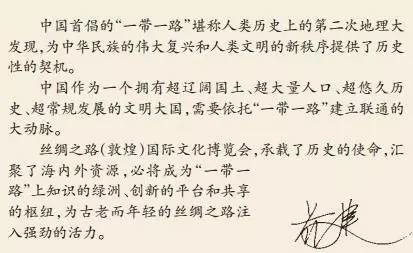 中国首倡的“一带一路”堪称人类历史上的第二次地理大
发现，为中华民族的伟大复兴和人类文明的新秩序提供了历史
性的契机。
中国作为一个拥有超辽阔国土、超大量人口、超悠久历
史、超常规发展的文明大国，需要依托“一带一路”建立联通的
大动脉。
丝绸之路（敦煌）国际文化博览会，承载了历史的使命，汇
聚了海内外资源，必将成为“一带一
路”上知识的绿洲、创新的平台和共享
的枢纽，为古老而年轻的丝绸之路注
入强劲的活力。